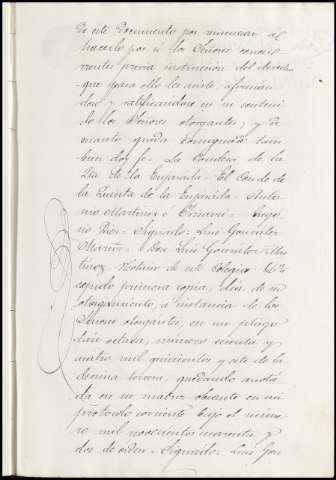 de este Documento por renunciar al
hacerlo por si los Señores concu-
rrentes previa instruccion del derecho
que para ello les asiste; afirman-
dose y ratificandose en su conteni-
do los Señores otorgantes; y de
cuanto queda consignado tam-
bien doy fe = La Condesa de la
Qta de la Enjarada = El Conde de
la Quinta de la Enjarada = Anto-
nio Martinez = Signado: Luis Gonzalez
Martinez = Don Luis Gonzalez Mar-
tinez Notario de este Colegio
copia primera copia, dia de su
otorgamiento, á instancia de los
Señores otorgantes, en un pliego
clase octava, número cuenta y
cuatro mil quinientos y siete de la
decima tercera, quedando anota-
da en su matriz obrante en mi
protocolo corriente bajo el nume-
ro mil novecientos noventa y
dos de orden = Signado: Luis Gon